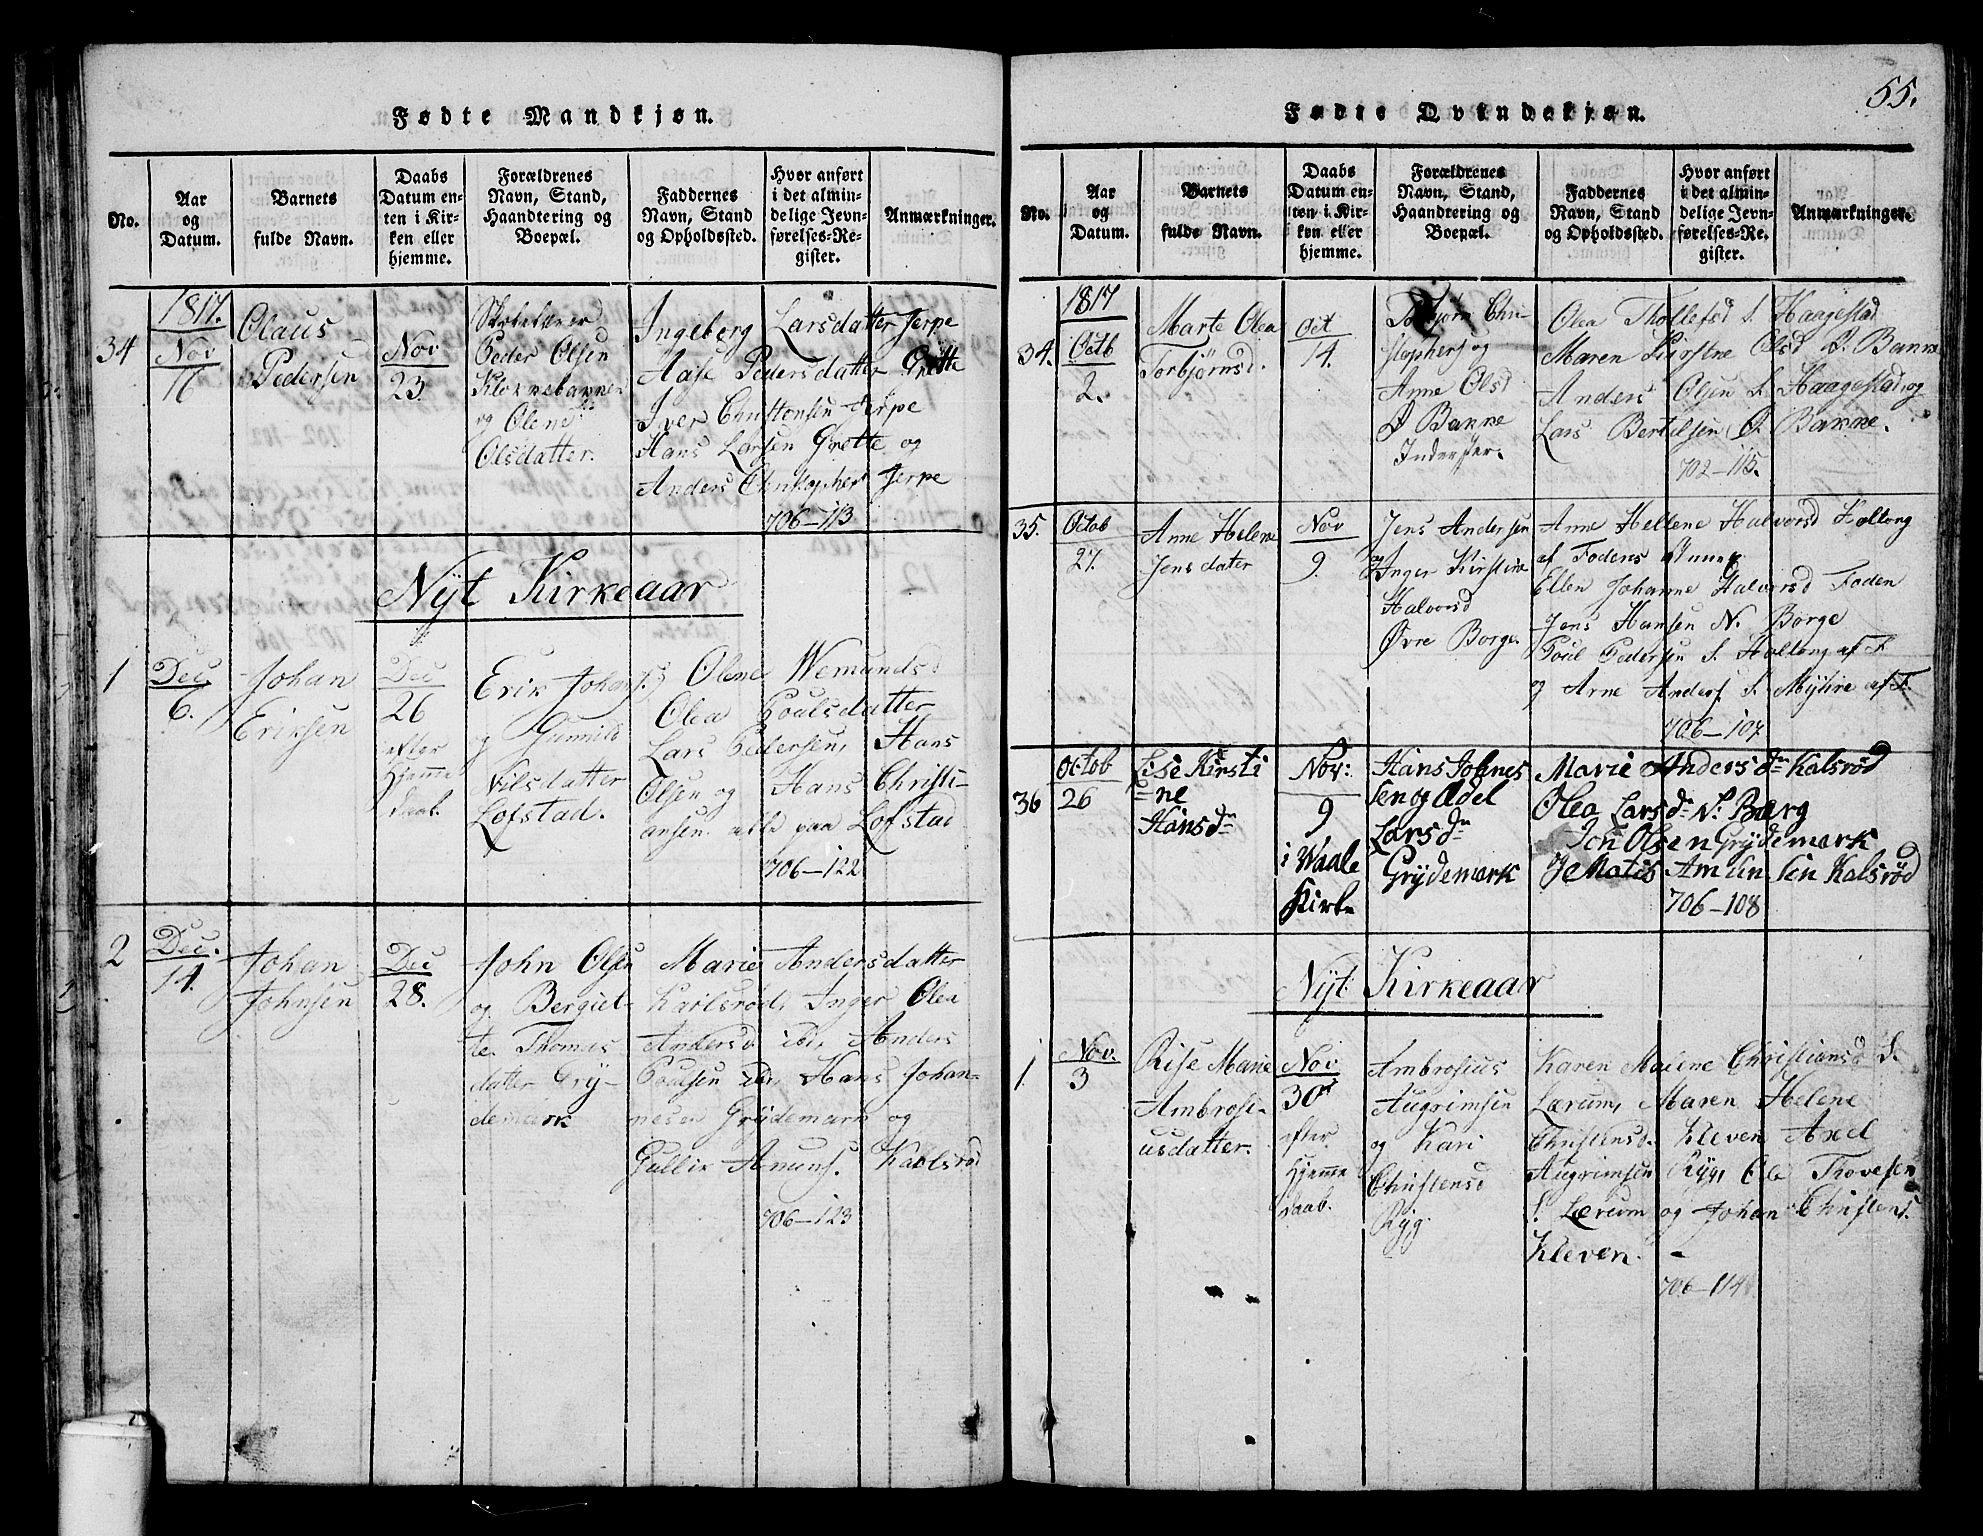 Fødte Mandkjøn.
No.
Aar
og
Datum.
Barnets
fulde Navn.
Daabs
Datum en-
ten i Kir-
ken eller
hjemme.
Forældrenes
Navn, Stand,
Haandtering og
Boepæl.
Faddernes
Navn, Stand
og Opholdssted.
Hvor anført
i det almin-
delige Jevn-
førelses-Re-
gister.
Anmærkninger.
34
1817.
Nov
16
Olaus
Pedersen
Nov
23
Peder Olsen
og Olene
Olsdatter.
Ingeberg Larsdatter Jerpe
Aase Pedersdatter Grette
Iver Jerpe
Hans Larsen Grette og
Anders Christophers Jerpe
706-113
Nyt Kirkeaar
1
Dec
6.
Johan
Eriksen
Dec
26
efter
hjemme
daab.
Erik Johans.
Gunnild
Nilsdatter
Lofstad.
Olene Wemundsd
Olea Poulsdatter
Lars Pedersen, Hans
Olsen og Hans Christi-
ansen alle paa Lofstad
706-122
2
Dec.
14.
Johan
Johnsen
Dec
28.
John Olsen
og Bergit-
te Thomas
datter Gry-
demark
Marie Andersdatter
Karlsrød, Inger Olea
Andersd ibd, Anders
Poulsen ibd, Hans Johan-
nesen Grydemark og
Gullik Amunds. Kaalsrød
706-123
Fødte Qvindekjøn.
55.
No.
Aar
og
Datum.
Barnets
fulde Navn.
Daabs
Datum en-
ten i Kir-
ken eller
hjemme.
Forældrenes
Navn, Stand,
Haandtering og
Boepæl.
Faddernes
Navn, Stand
og Opholdssted.
Hvor anført
i det almin-
delige Jevn-
førelses-Re-
gister.
Anmærkninger.
34.
1817
Octb
2.
Marte Olea
Torbjørnsd.
Oct
14.
Torbjørn Chri-
stophers og
Anne Olsd
Ø Banne
Inderster.
Olea Thollefsd S. Haagestad
Maren Kirstine Olsd Ø. Banne
Anders Olsen S. Haagestad og
Lars Bertelsen Ø. Banne.
702-115.
35.
Octob
27.
Anne Helene
Jensdatter
Nov
9.
Jens Andersen
og Inger Kirstine
Halvorsd
Øvre Borge.
Anne Hellene Halvorsd Holtong
af Fodens
Ellen Johanne Halvorsd Foden
Jens Hansen N. Borge
Poul Pedersen S. Holtong af F.
og Arne Anders. S. Myhre af F.
706-107
36
Octob
26
Lise Kirsti
ne
Hansdr
Nov:
9
i Waale
Kirke
Hans Johnes
sen og Edel
Larsdr
Grydemark
Marie Andersdr Kalsrød
Olea Larsdr N. Bærg
Jon Olsen Grydemark
706-108
Nyt Kirkeaar
1.
Nov.
3
Rise Marie
Ambrosi-
usdatter.
Nov
30
efter
hjemme
daab.
Ambrosius
Augrimsen
og Kari
Christensd
Ryg.
Karen Malene Christiansd S.
Lærum, Maren Helene
Christensd. Kleven Axel
Augrimsen Ryg, Ole Thovesen
S. Lærum og Johan Christens.
Kleven.
706-114